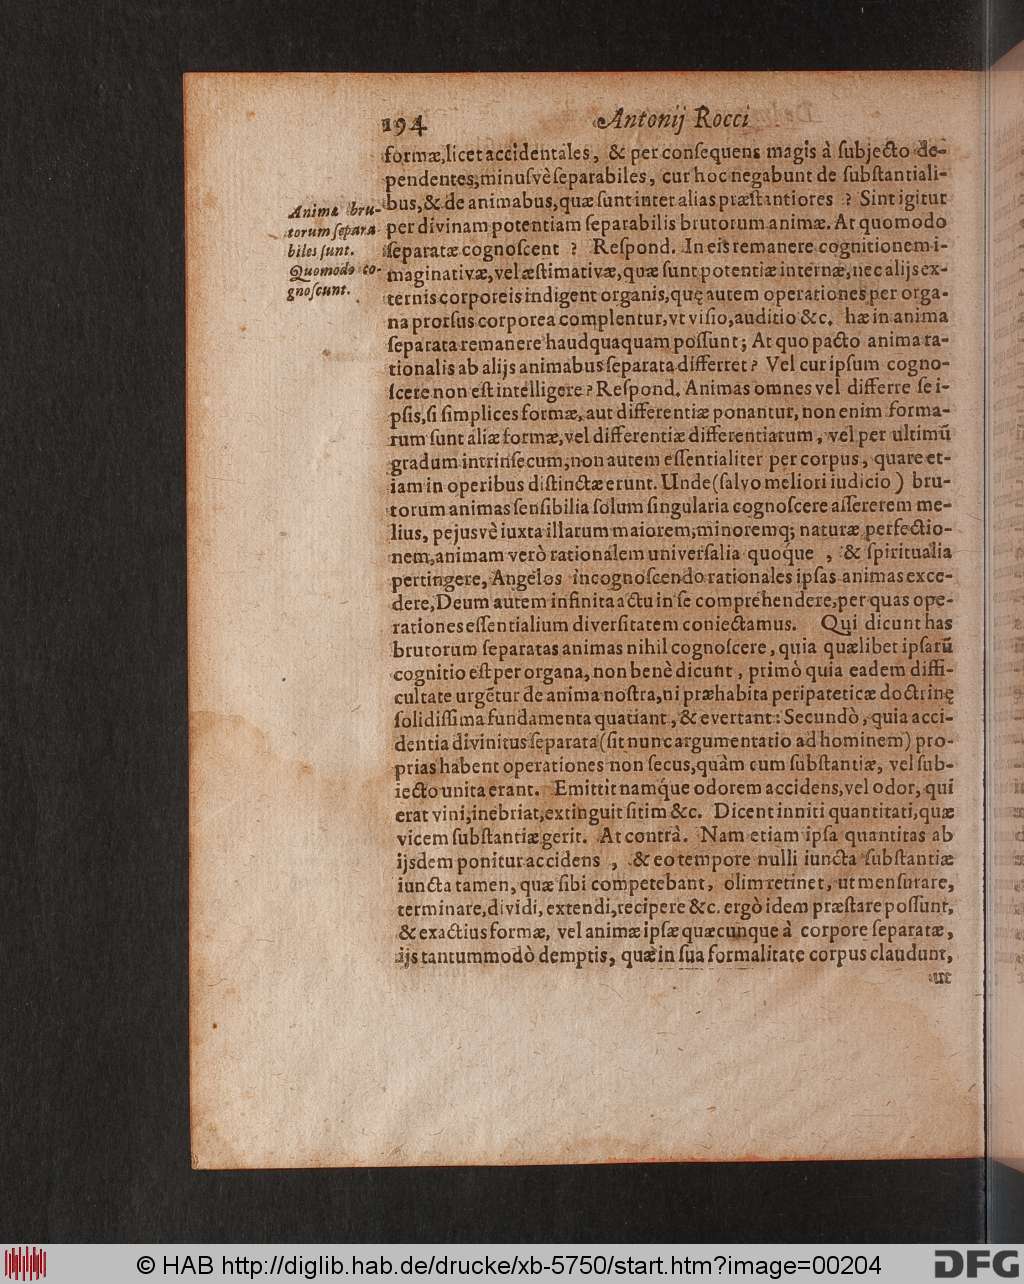 194 Antonij Rocci
formæ, licet accidentales, & per conſequens magis à ſubjecto de-
pendentes, minuſvè ſeparabiles, cur hoc negabunt de ſubſtantiali-
bus, & de animabus, quæ ſunt inter alias præſtantiores ? Sint igitur
per divinam potentiam ſeparabilis brutorum animæ. At quomodo
ſeparatæ cognoſcent ? Reſpond. In eis remanere cognitionem i-
maginativæ, vel æſtimativæ, quæ ſunt potentiæ internæ, nec alijs ex-
ternis corporeis indigent organis, quę autem operationes per orga-
na prorſus corporea complentur, vt viſio, auditio &c. hæ in anima
ſeparata remanere haudquaquam poſſunt; At quo pacto anima ra-
tionalis ab alijs animabus ſeparata differret? Vel cur ipſum cogno-
ſcere non eſt intelligere? Reſpond. Animas omnes vel differre ſe i-
pſis, ſi ſimplices formæ, aut differentiæ ponantur, non enim forma-
rum ſunt aliæ formæ, vel differentiæ differentiarum, vel per ultimũ
gradum intrinſecum, non autem eſſentialiter per corpus, quare et-
iam in operibus diſtinctæ erunt. Unde (ſalvo meliori iudicio) bru-
torum animas ſenſibilia ſolum ſingularia cognoſcere aſſererem me-
lius, pejusvè iuxta illarum maiorem, minoremq; naturæ perfectio-
nem, animam verò rationalem univerſalia quoque , & ſpiritualia
pertingere, Angelos in cognoſcendo rationales ipſas animas exce-
dere, Deum autem infinita actu in ſe comprehendere, per quas ope-
rationes eſſentialium diverſitatem coniectamus. Qui dicunt has
brutorum ſeparatas animas nihil cognoſcere, quia quælibet ipſarũ
cognitio eſt per organa, non benè dicunt, primò quia eadem diffi-
cultate urgẽtur de anima noſtra, ni præhabita peripateticæ doctrinę
ſolidiſſima fundamenta quatiant, & evertant: Secundò, quia acci-
dentia divinitus ſeparata (ſit nunc argumentatio ad hominem) pro-
prias habent operationes non ſecus, quàm cum ſubſtantiæ, vel ſub-
iecto unita erant. Emittit namque odorem accidens, vel odor, qui
erat vini, inebriat, extinguit ſitim &c. Dicent inniti quantitati, quæ
vicem ſubſtantiæ gerit. At contrà. Nam etiam ipſa quantitas ab
ijsdem ponitur accidens , & eo tempore nulli iuncta ſubſtantiæ
iuncta tamen, quæ ſibi competebant, olim retinet, ut menſurare,
terminare, dividi, extendi, recipere &c. ergò idem præſtare poſſunt,
& exactius formæ, vel animæ ipſæ quæcunque à corpore ſeparatæ,
ijs tantummodò demptis, quæ in ſua formalitate corpus claudunt,
ut
Animæ bru-
torum ſepara
biles ſunt.
Quomodo co-
gnoſcunt.
© HAB http://diglib.hab.de/drucke/xb-5750/start.htm?image=00204
DFG